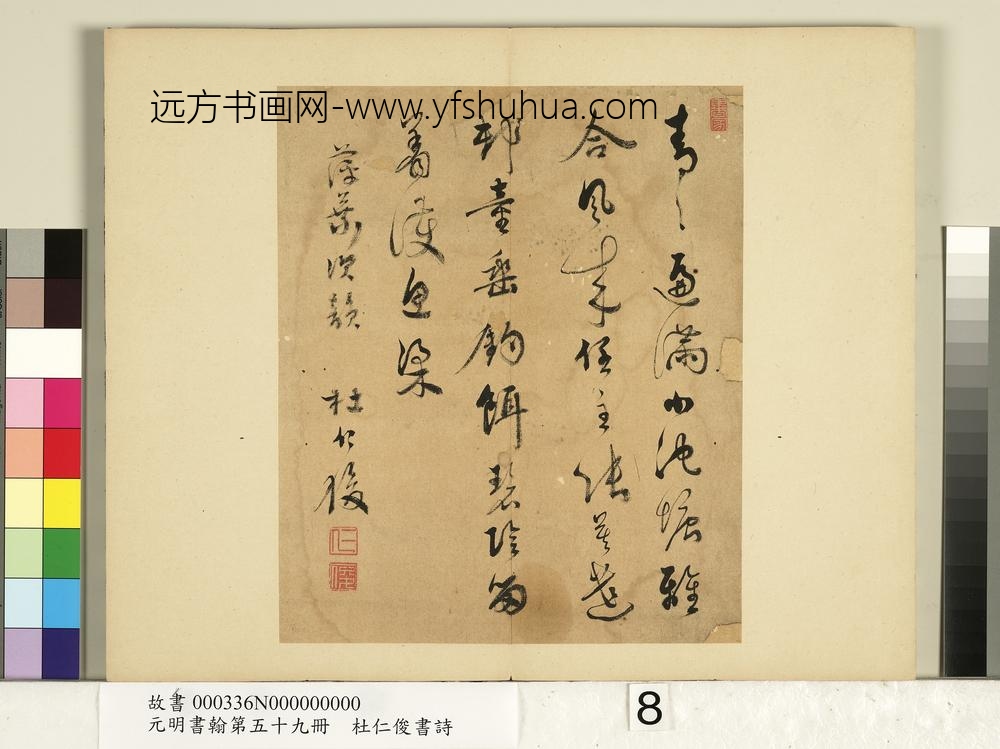 远方书画网-www.yfshuhua.com
青〻遍滿小池塘離
合風來任主張莫遣
邨童垂釣餌碧陰留
着護魚梁
萍葉次韻 杜仁俊
故書 000336N000000000
元明書翰第五十九冊 杜仁俊書詩
8